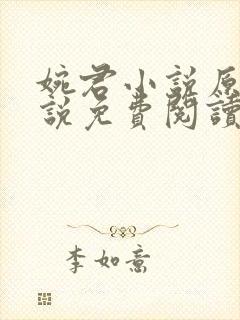 婉君小说原
说免費閱讀
李如意